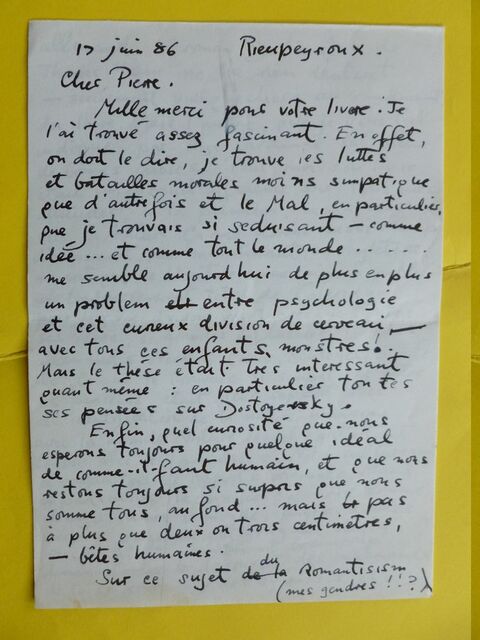 17 juin 86 Rieupeyroux.
Cher Pierre.
Mille merci pour votre livre. Je
l'ai trouvé assez fascinant. En effet,
on doit le dire, je trouve les luttes
et batailles morales moins simpatique
que d'autrefois et le Mal, en particulier,
que je trouvais si seduisant – comme
idée ... et comme tout le monde .....
me semble aujourd'hui de plus en plus
un problem entre psychologie
et cet cureux division de cerveau, —
avec tous ces enfants, monstres!.
Mais le thèse était très interessant
quant même : en particulier toutes
ses pensées sur Dostoyevsky.
Enfin, quel curiosité que nous
esperons toujours pour quelque idéal
de comme-il faut humain, et que nous
restons toujours si surpris que nous
somme tous, au fond ... mais pas
à plus que deux ou trois centimètres,
— bêtes humaines.
Sur ce sujet du Romantisism
(mes gendres !!?)